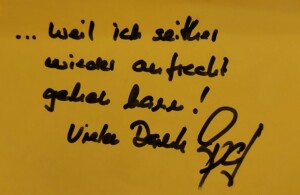 ... weil ich seither
wieder aufrecht
gehen kann!
Vielen Dank